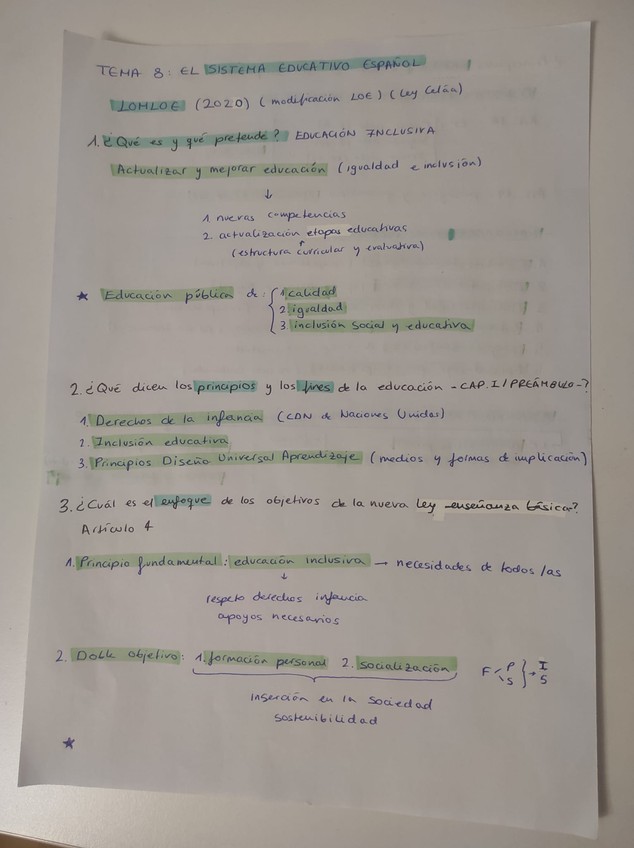 TEMA 8: EL SISTEMA EDUCATIVO ESPAÑOL
LOMLOE (2020) (modificación LOE) (Ley Celáa)
1. ¿Qué es y qué pretende? EDUCACIÓN INCLUSIVA
Actualizar y mejorar educación (igualdad e inclusión)
↓
1 nuevas competencias
2 actualización etapas educativas
(estructura curricular y evaluativa)
★ Educación pública de: { 1 calidad
2 igualdad
3 inclusión social y educativa
2. ¿Qué dicen los principios y los fines de la educación - CAP. I / PREÁMBULO -?
1. Derechos de la infancia (CDN de Naciones Unidas)
2. Inclusión educativa
3. Principios Diseño Universal Aprendizaje (medios y formas de implicación)
3. ¿Cuál es el enfoque de los objetivos de la nueva Ley enseñanza básica?
Artículo 4
1. Principio fundamental: educación inclusiva → necesidades de todos/as
↓
respeto derechos infancia
apoyos necesarios
2. Doble objetivo: 1. formación personal 2. socialización F < P S } → I S
Inserción en la sociedad
sostenibilidad
★